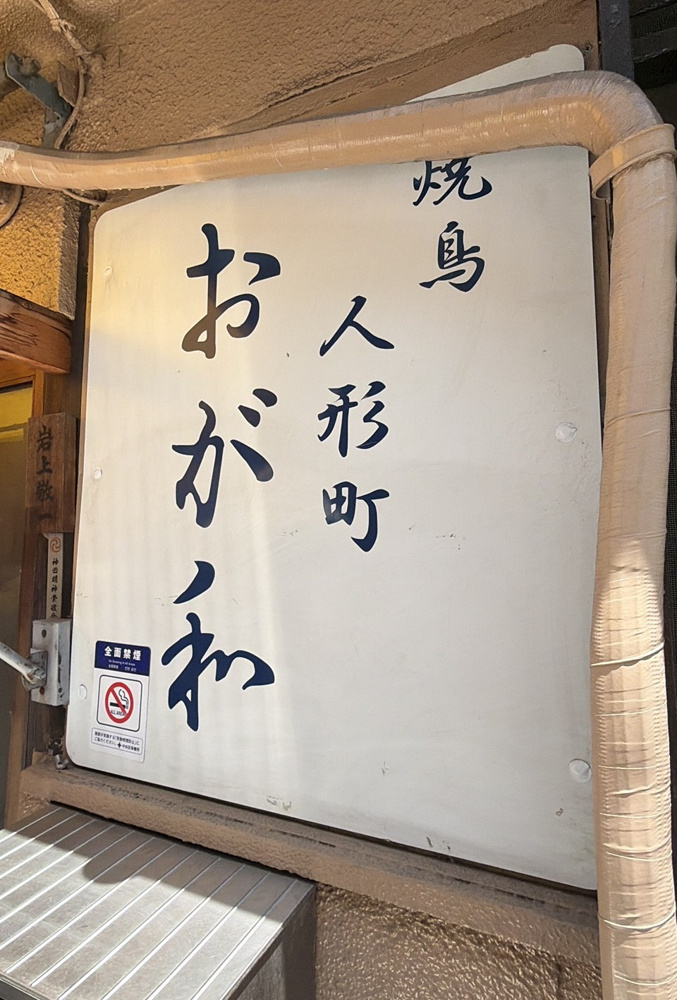 焼鳥
人形町
おが和
岩上敬一
神田明神
全面禁煙